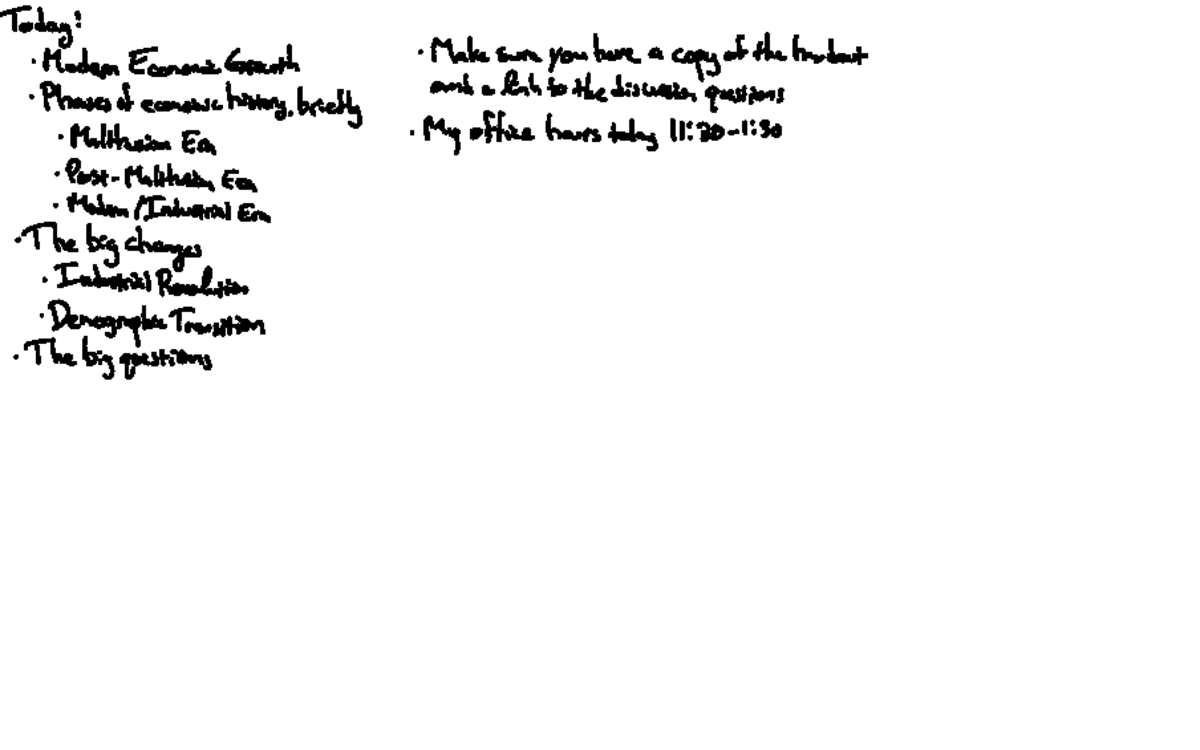 Today:
· Modern Economic Growth
· Phases of economic history, briefly
· Malthusian Era
· Post-Malthusian Era
· Modern/Industrial Era
· The big changes
· Industrial Revolution
· Demographic Transition
· The big questions
· Make sure you have a copy of the handout
and a link to the discussion questions
· My office hours today 11:30-1:30